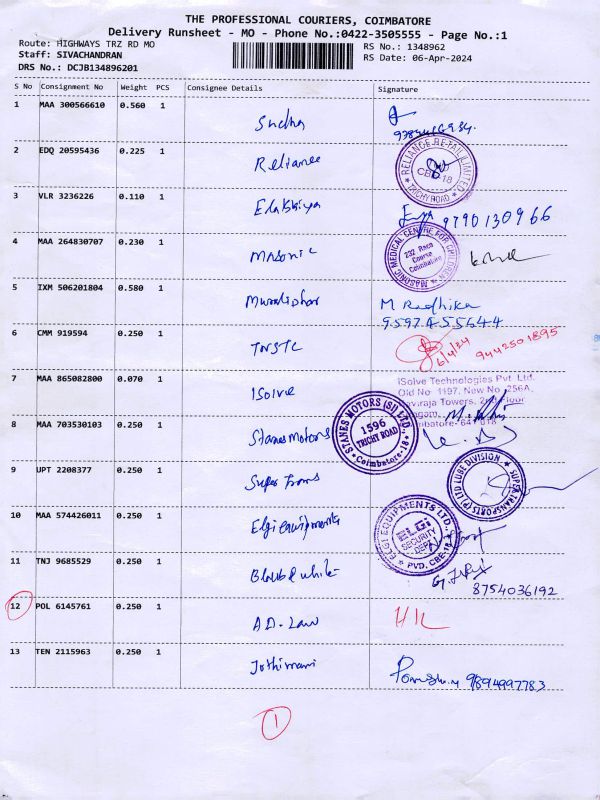 THE PROFESSIONAL COURIERS, COIMBATORE
Delivery Runsheet - MO - Phone No.:0422-3505555 - Page No.:1
Route: HIGHWAYS TRZ RD MO
RS No.: 1348962
Staff: SIVACHANDRAN
RS Date: 06-Apr-2024
DRS No.: DCJB134896201
S No Consignment No Weight PCS Consignee Details Signature
1 MAA 300566610 0.560 1 Sudha
2 EDQ 20595436 0.225 1 Reliance RELIANCE RETAIL LIMITED TRICHY ROAD
3 VLR 3236226 0.110 1 Elakkiya 9790130966
4 MAA 264830707 0.230 1 Masonic MASONIC MEDICAL CENTRE FOR CHILDREN 232 Race Course Coimbatore
5 IXM 506201804 0.580 1 Muralidhar M Radhika
9597455644
6 CMM 919594 0.250 1 TNSTC 6/4/24 9442501895
7 MAA 865082800 0.070 1 ISolve iSolve Technologies Pvt. Ltd.
Old No 1197, New No 256A,
8 MAA 703530103 0.250 1 Stanes Motors STANES MOTORS (SI) LTD. 1596 TRICHY ROAD Coimbatore-18
9 UPT 2208377 0.250 1 Super Trans SUPER TRANSPORTS (P) LTD LUBE DIVISION
10 MAA 574426011 0.250 1 Elgi equipments ELGI EQUIPMENTS LTD. ELGI SECURITY DEPT PVD. CBE-18
11 TNJ 9685529 0.250 1 Black & white 8754036192
12 POL 6145761 0.250 1 A.D. Law
13 TEN 2115963 0.250 1 Jothimani 9894997783
1